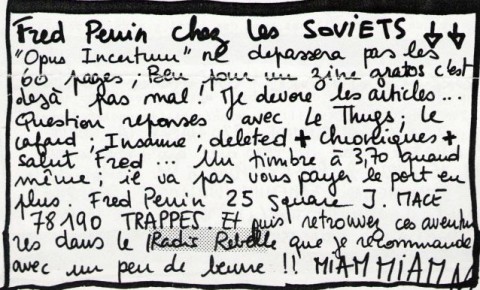 Fred Perrin chez les SOVIETS ↓↓
"Opus Incertum" ne depassera pas les
60 pages ; Ben, pour un zine gratos c'est
dejà pas mal ! Je devore les articles ...
Question reponses avec Le Thugs ; le
cafard ; Insanne ; deleted + chroniques +
salut Fred ... Un timbre à 3,70 quand
même ; il va pas vous payer le port en
plus. Fred Perrin 25 Square J. MACÉ
78190 TRAPPES. Et puis retrouvez ces aventu
res dans le Radis Rebelle que je recommande
avec un peu de beurre !! MIAM MIAM M